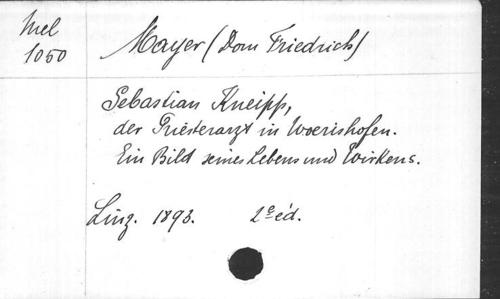 Mel
1050
Mayer (Dom Friedrich)
Sebastian Kneipp,
der Priesterarzt in Woerishofen.
Ein Bild seines Lebens und Wirkens.
Linz. 1893. 2e éd.